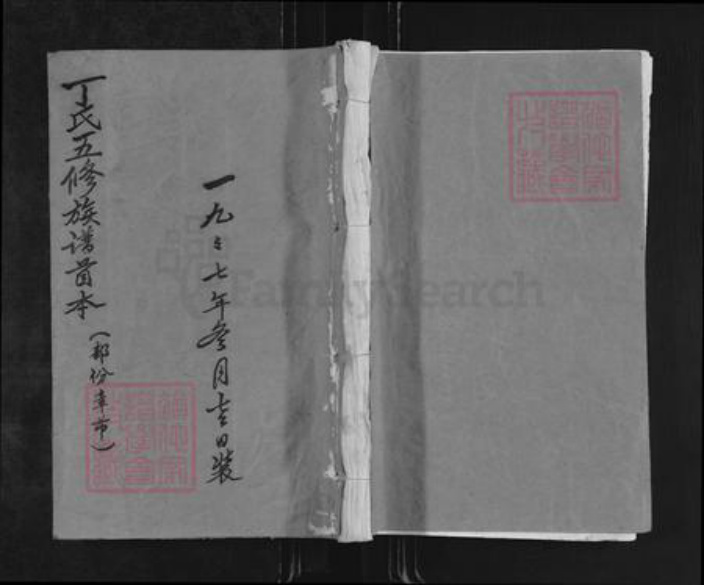 丁氏五修族谱首本
(部份章节)
一九々七年冬月吉日装
FamilySearch